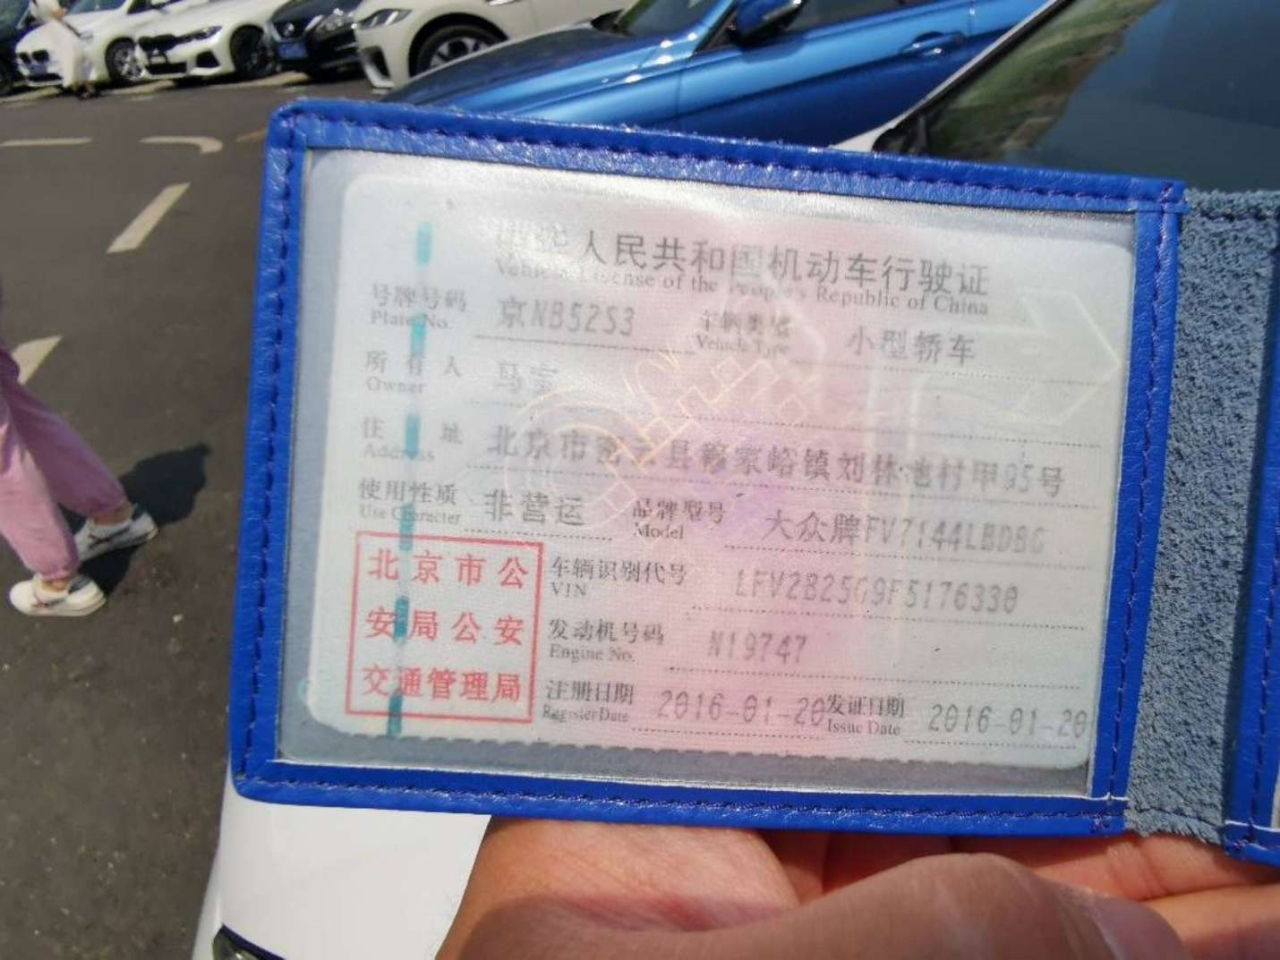 人民共和国机动车行驶证
Vehicle License of the People's Republic of China
号牌号码 京NB52S3 车辆类型 小型轿车
Plate No. Vehicle Type
所有人 马宝
Owner
住址 北京市密云县穆家峪镇刘林池村甲95号
Address
使用性质 非营运 品牌型号 大众牌FV7144LBDBG
Use Character Model
北京市公 车辆识别代号 LFV2B25G9F5176330
VIN
安局公安 发动机号码 N19747
Engine No.
交通管理局 注册日期 2016-01-20 发证日期 2016-01-20
Register Date Issue Date